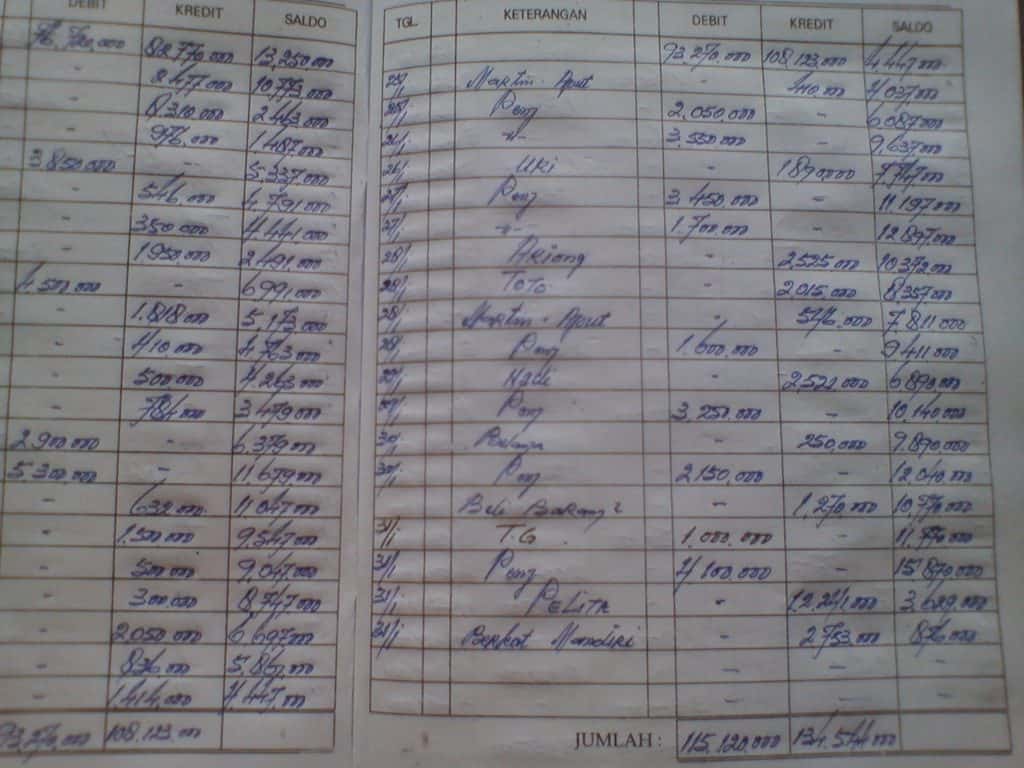 DEBIT KREDIT SALDO
76.720.000 82.770.000 13.250.000
- 2.477.000 10.773.000
- 8.310.000 2.463.000
- 976.000 1.487.000
3.850.000 - 5.337.000
- 546.000 4.791.000
- 350.000 4.441.000
- 1.950.000 2.491.000
4.500.000 - 6.991.000
- 1.818.000 5.173.000
- 410.000 4.763.000
- 500.000 4.263.000
- 784.000 3.479.000
2.900.000 - 6.379.000
5.300.000 - 11.679.000
- 632.000 11.047.000
- 1.500.000 9.547.000
- 500.000 9.047.000
- 300.000 8.747.000
- 2.050.000 6.697.000
- 836.000 5.861.000
- 1.414.000 4.447.000
93.270.000 108.123.000
TGL. KETERANGAN DEBIT KREDIT SALDO
93.270.000 108.123.000 4.447.000
Martin - - 410.000 4.037.000
Pong 2.050.000 - 6.087.000
-"- 3.550.000 - 9.637.000
26/1 Uki - 1.890.000 7.747.000
27/1 Pong 3.450.000 - 11.197.000
27/1 -"- 1.700.000 - 12.897.000
28/1 Akiong - 2.525.000 10.372.000
28/1 TOTO - 2.015.000 8.357.000
28/1 Martin - - 546.000 7.811.000
Pong 1.600.000 - 9.411.000
Hadi - 2.522.000 6.890.000
Pong 3.250.000 - 10.140.000
30/1 - 250.000 9.890.000
30/1 Pong 2.150.000 - 12.040.000
Beli Barang² - 1.270.000 10.770.000
31/1 T.G 1.000.000 - 11.770.000
31/1 Pong 4.100.000 - 15.870.000
31/1 PELITA - 12.241.000 3.629.000
31/1 Berkat Mandiri - 2.753.000 876.000
- - -
- - -
JUMLAH : 115.120.000 134.544.000